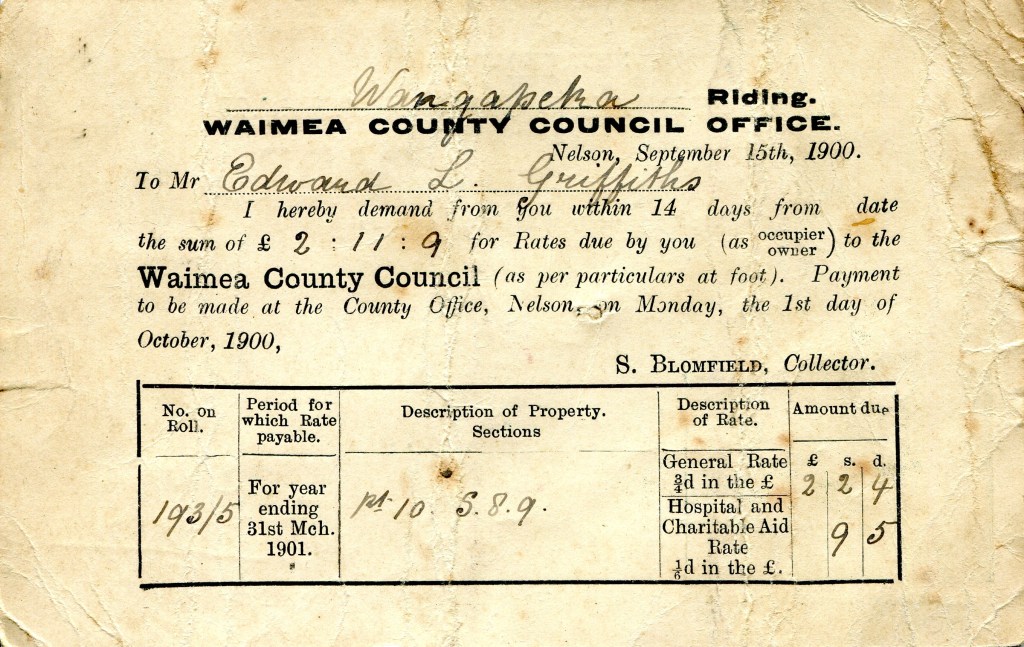 Wangapeka Riding.
WAIMEA COUNTY COUNCIL OFFICE.
Nelson, September 15th, 1900.
To Mr Edward L. Griffiths
I hereby demand from you within 14 days from date
the sum of £ 2 : 11 : 9 for Rates due by you (as occupier owner) to the
Waimea County Council (as per particulars at foot). Payment
to be made at the County Office, Nelson, on Monday, the 1st day of
October, 1900,
S. BLOMFIELD, Collector.
No. on Roll.
Period for which Rate payable.
Description of Property.
Sections
Description of Rate.
Amount due
£ s. d.
193/5
For year ending 31st Mch. 1901.
pt 10. S. 8. 9.
General Rate
¾d in the £ 2 2 4
Hospital and
Charitable Aid
Rate 9 5
⅙d in the £.